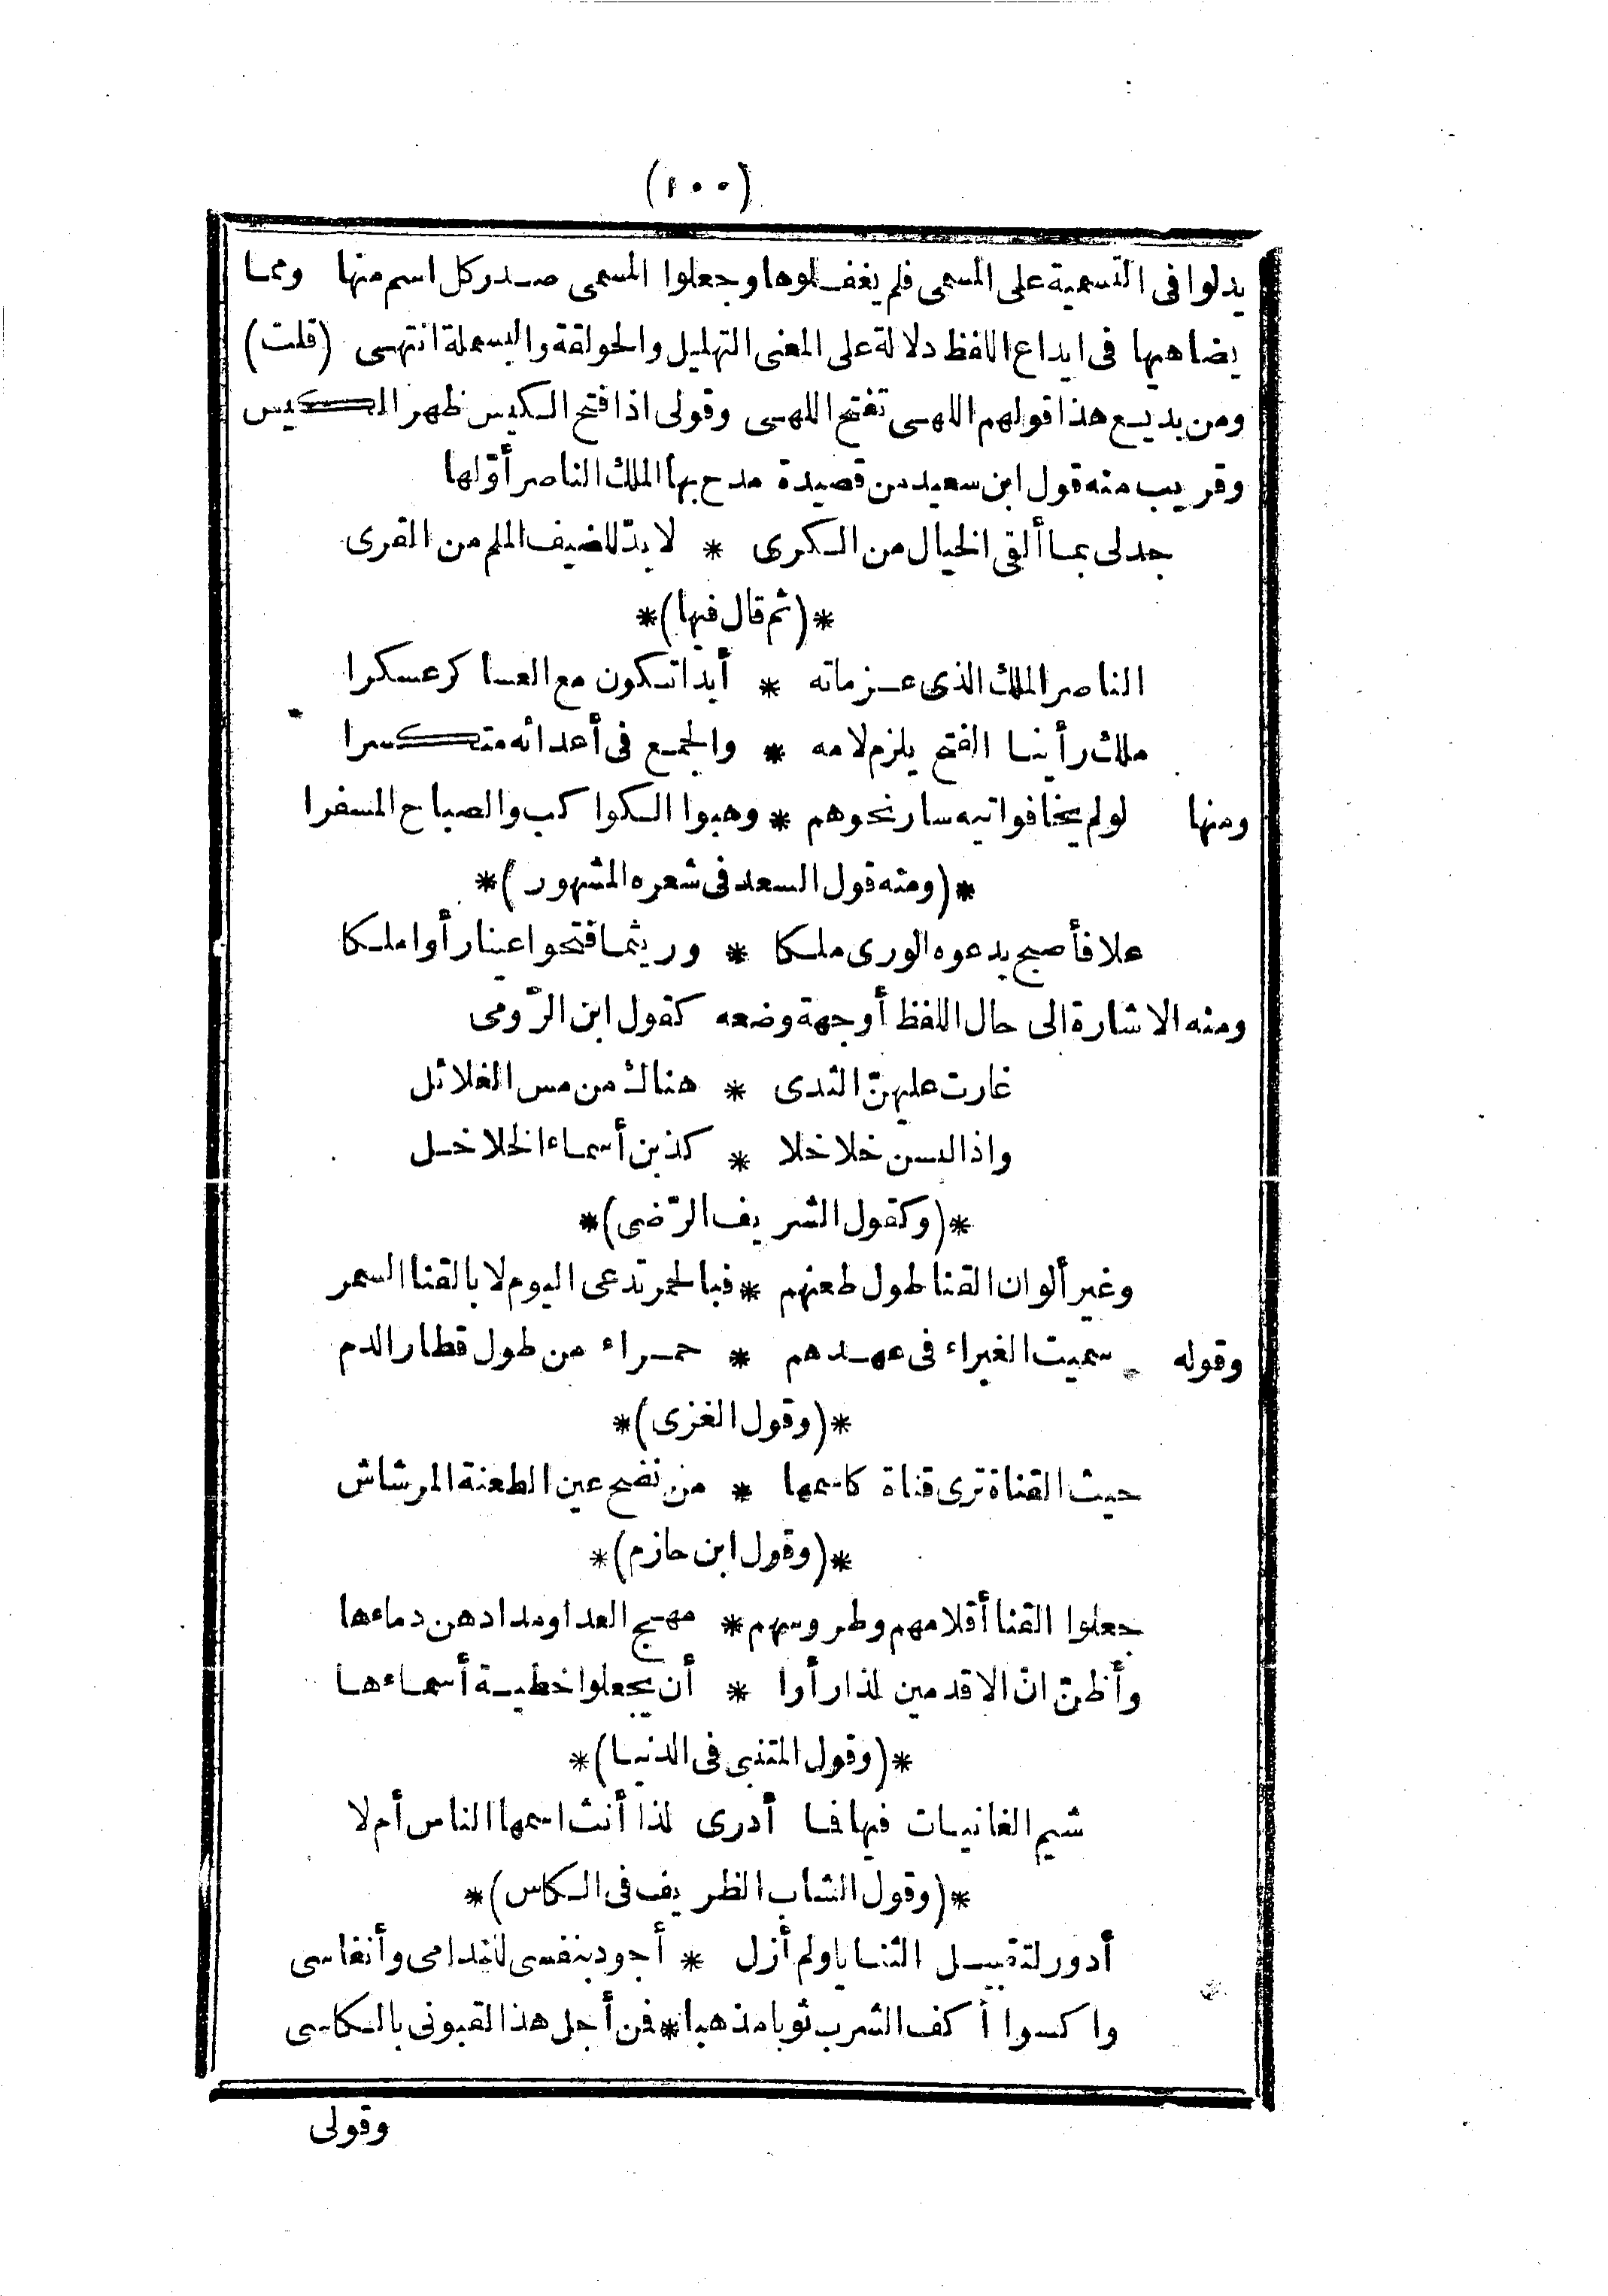 (١٠٠)
يدلوا فى التسمية على المسمى فلم يغفلوها وجعلوا المسمى صدر كل اسم منها ومما
يضاهيها فى ايداع اللفظ دلالة على المعنى التهليل والحولقة والبسملة انتهى (قلت)
ومن بديع هذا قولهم اللهى تفتح اللهى وقولى اذا فتح الكيس ظهر الكيس
وقريب منه قول ابن سعيد من قصيدة مدح بها الملك الناصر أوّلها
جد لى بما ألقى الخيال من الكرى * لا بدّ للضيف الملم من القرى
*(ثم قال فيها)*
الناصر الملك الذى عزماته * أبدا تكون مع العساكر عسكرا
ملك رأينا الفتح يلزم لامه * والجمع فى أعدائه متكسرا
ومنها لو لم يخافوا تيه سار نحوهم * وهبوا الكواكب والصباح المسفرا
*(ومنه قول السعد فى شعره المشهور)*
علا فأصبح يدعوه الورى ملكا * وريثما فتحوا عينا رأوا ملكا
ومنه الاشارة الى حال اللفظ أو جهة وضعه كقول ابن الرّومى
غارت عليهنّ الثدى * هناك من مس الغلائل
واذا لبسن خلاخلا * كذبن أسماء الخلاخل
*(وكقول الشريف الرّضى)*
وغير ألوان القنا طول طعنهم * فبالحمر تدعى اليوم لا بالقنا السمر
وقوله سميت الغبراء فى عهدهم * حمراء من طول قطار الدم
*(وقول الغزى)*
حيث القناة ترى قناة كاسمها * من نضح عين الطعنة المرشاش
*(وقول ابن حازم)*
جعلوا القنا أقلامهم وطروسهم * مهج العدا ومدادهن دماءها
وأظنّ انّ الاقدمين لذا رأوا * أن يجعلوا خطية أسماءها
*(وقول المتنبى فى الدنيا)*
شيم الغانيات فيها فما أدرى لذا أنث اسمها الناس أم لا
*(وقول الشاب الظريف فى الكاس)*
أدور لتقبيل الثنايا ولم أزل * أجود بنفسى للندامى وأنفاسى
واكسوا أكف الشرب ثوبا مذهبا * فمن أجل هذا لقبونى بالكاسى
وقولى